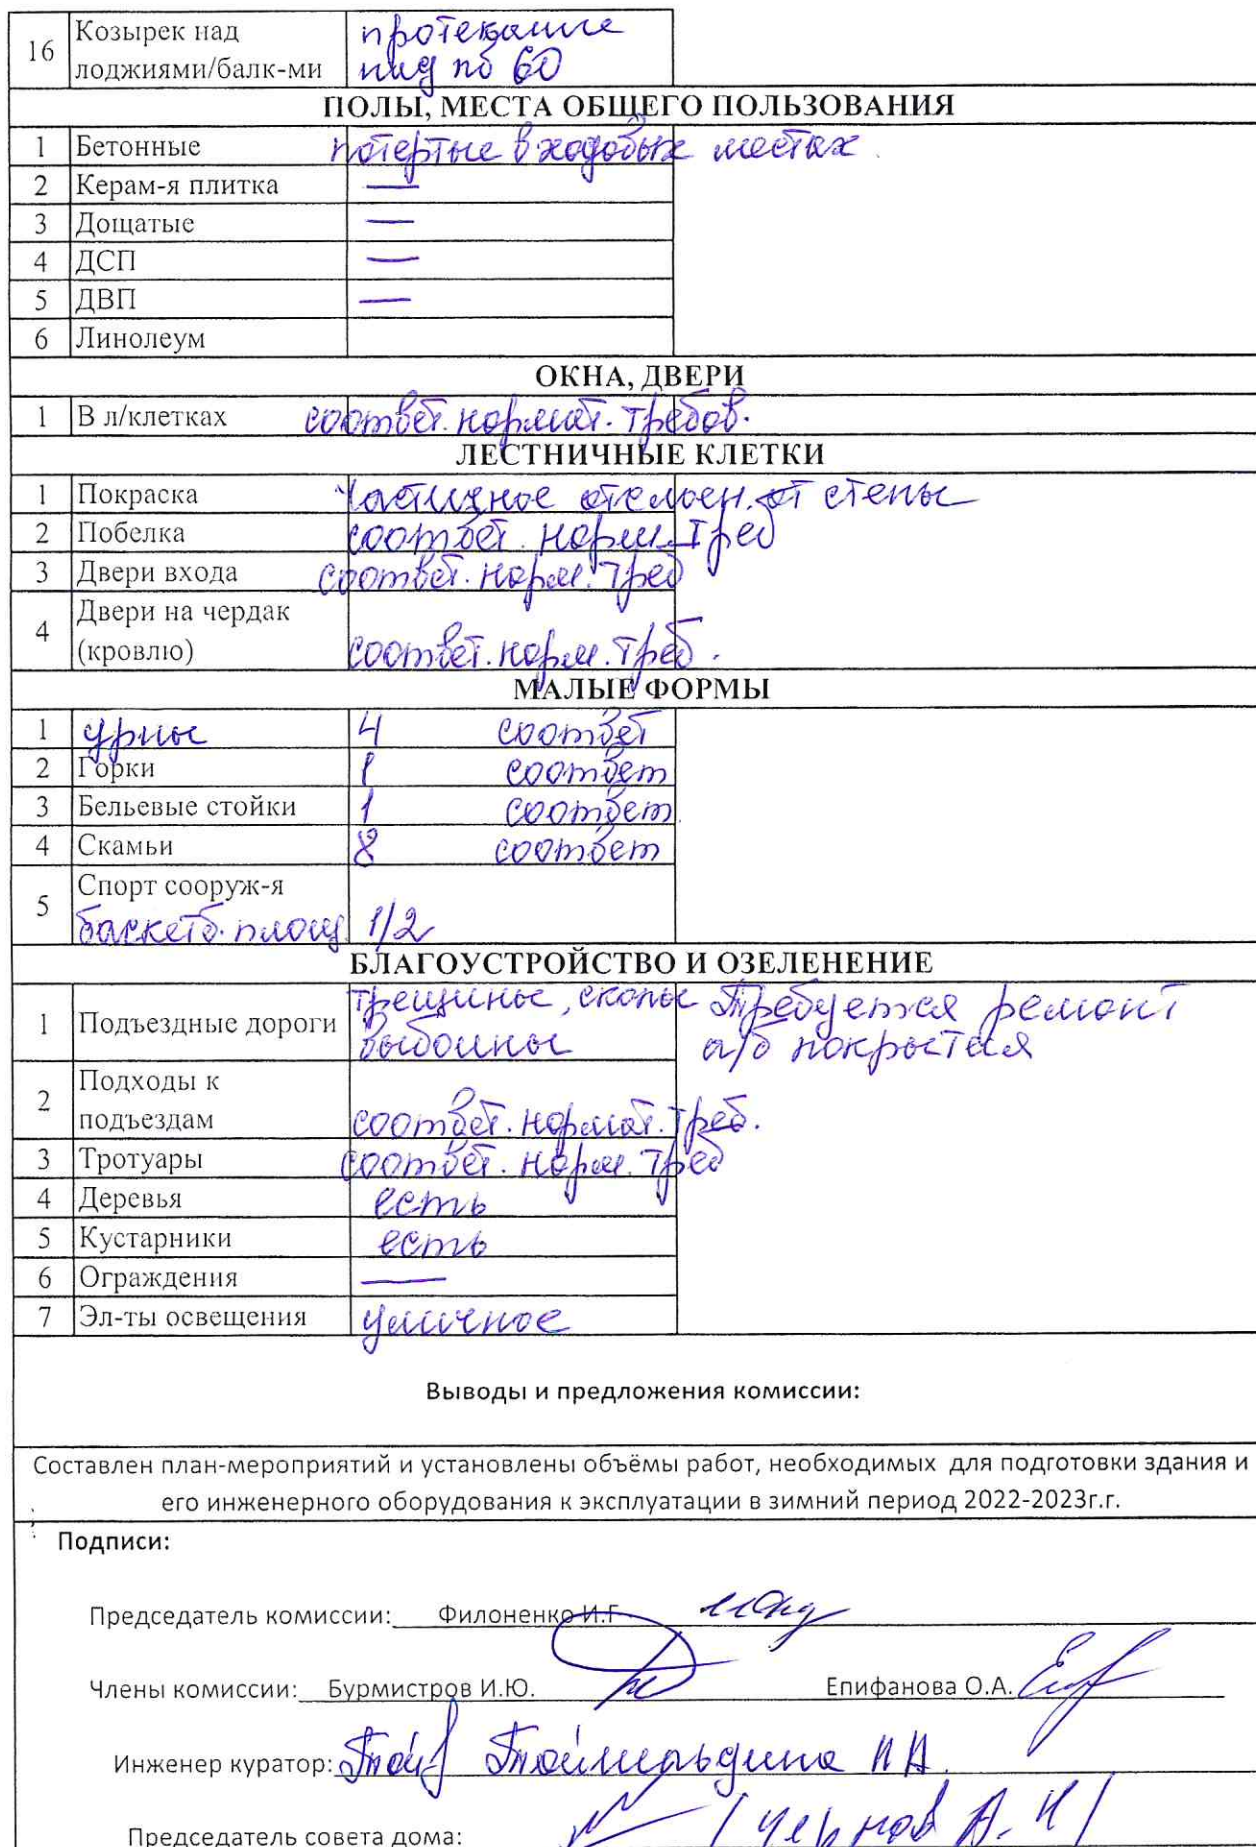 16 Козырек над
лоджиями/балк-ми
протекание
над по 60
ПОЛЫ, МЕСТА ОБЩЕГО ПОЛЬЗОВАНИЯ
1 Бетонные потертые в ходовых местах.
2 Керам-я плитка —
3 Дощатые —
4 ДСП —
5 ДВП —
6 Линолеум
ОКНА, ДВЕРИ
1 В л/клетках соответ. нормат. требов.
ЛЕСТНИЧНЫЕ КЛЕТКИ
1 Покраска частичное отслоен. от стены
2 Побелка соответ. норм. треб
3 Двери входа соответ. норм. треб
4 Двери на чердак
(кровлю) соответ. норм. треб.
МАЛЫЕ ФОРМЫ
1 урны 4 соответ
2 Горки 1 соответ
3 Бельевые стойки 1 соответ
4 Скамьи 8 соответ
5 Спорт сооруж-я
баскетб. площ. 1/2
БЛАГОУСТРОЙСТВО И ОЗЕЛЕНЕНИЕ
1 Подъездные дороги
трещины, сколы
выбоины
Требуется ремонт
а/б покрытия
2 Подходы к
подъездам соответ. нормат. треб.
3 Тротуары соответ. норм. треб
4 Деревья есть
5 Кустарники есть
6 Ограждения —
7 Эл-ты освещения уличное
Выводы и предложения комиссии:
Составлен план-мероприятий и установлены объёмы работ, необходимых для подготовки здания и
его инженерного оборудования к эксплуатации в зимний период 2022-2023г.г.
Подписи:
Председатель комиссии: Филоненко И.Г
Члены комиссии: Бурмистров И.Ю. Епифанова О.А.
Инженер куратор:
Председатель совета дома: / Чернов А. Н /